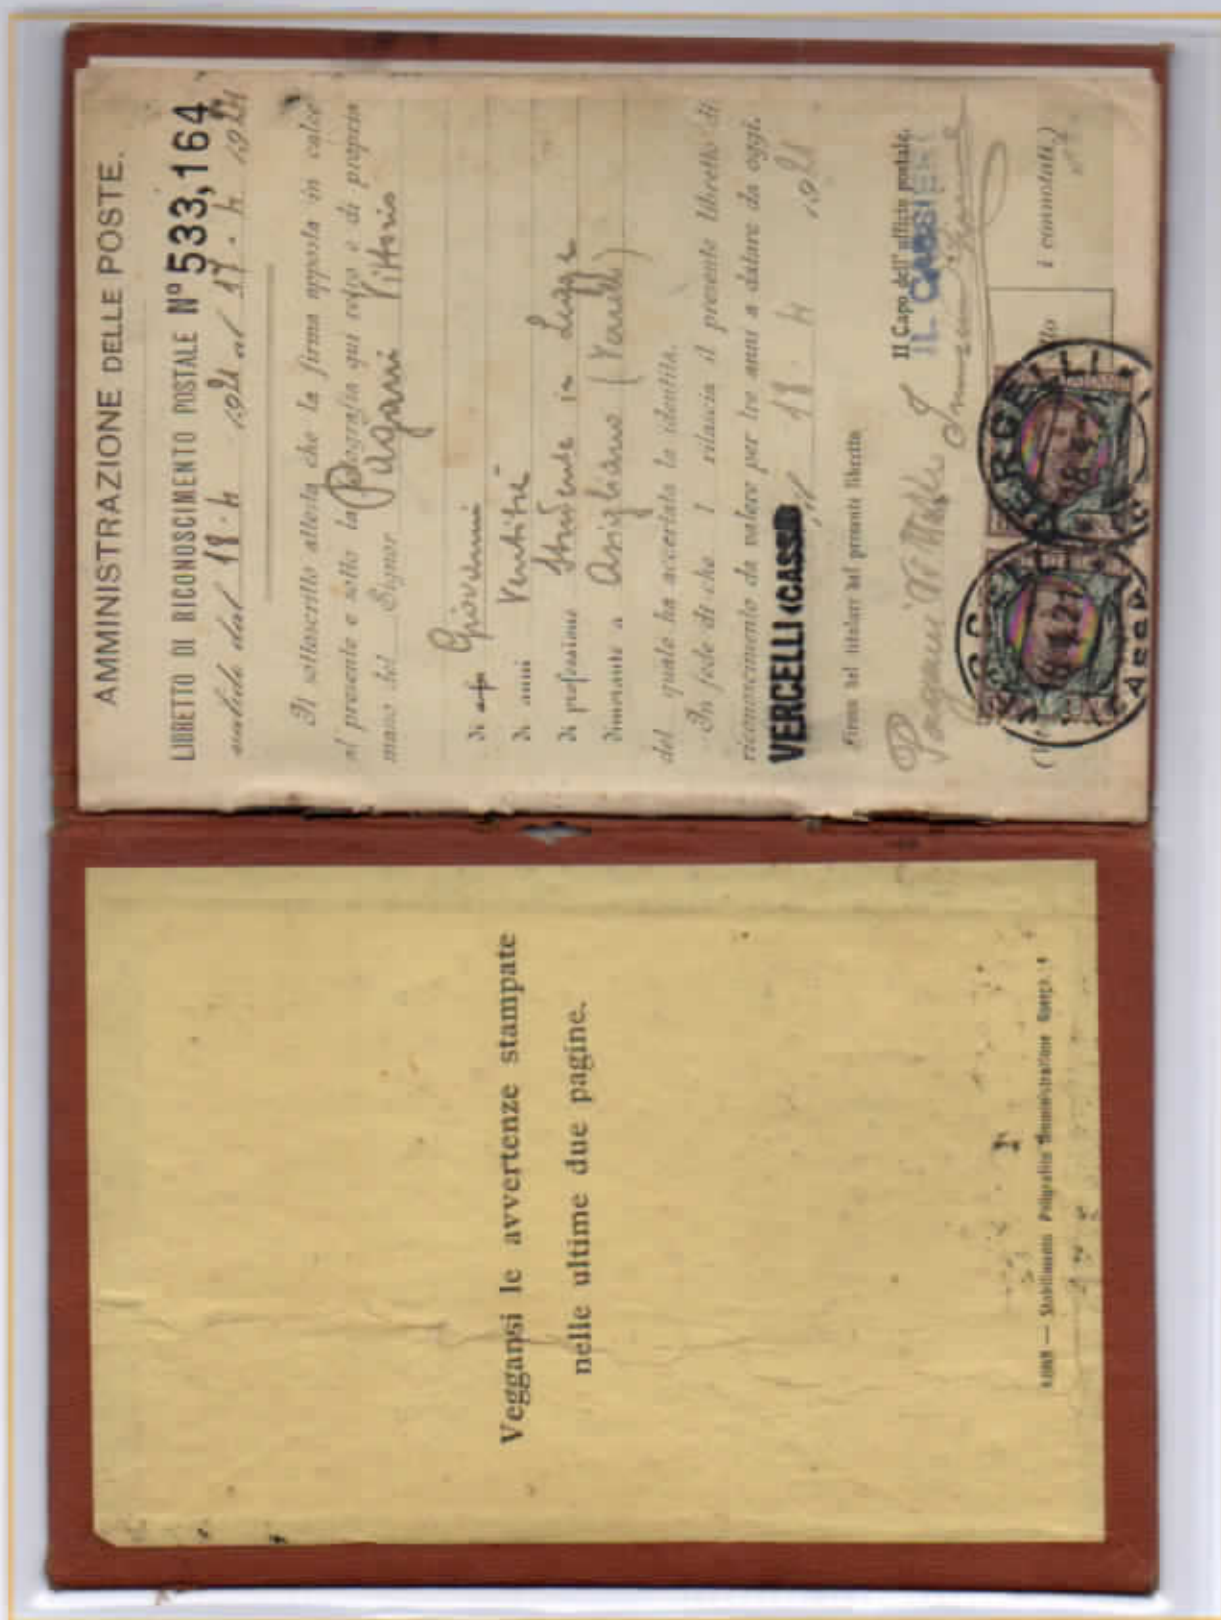 Veggansi le avvertenze stampate
nelle ultime due pagine.
ROMA — Stabilimento Poligrafico Amministrazione Guerra.
AMMINISTRAZIONE DELLE POSTE.
LIBRETTO DI RICONOSCIMENTO POSTALE N° 533,164
valido dal 18. 4 1921 al 17. 4. 1924
Il sottoscritto attesta che la firma apposta in calce
al presente e sotto la fotografia qui retro è di propria
mano del Signor Pagani Vittorio
di Giovanni
di anni Ventitré
di professione Studente in Legge
dimorante a Asigliano (Vercelli)
del quale ha accertata la identità.
In fede di che rilascia il presente libretto di
riconoscimento da valere per tre anni a datare da oggi.
VERCELLI 18 4 1921
Firma del titolare del presente libretto
Il Capo dell'ufficio postale,
IL CASSIERE
Pagani Vittorio
VERCELLI
i connotati.)